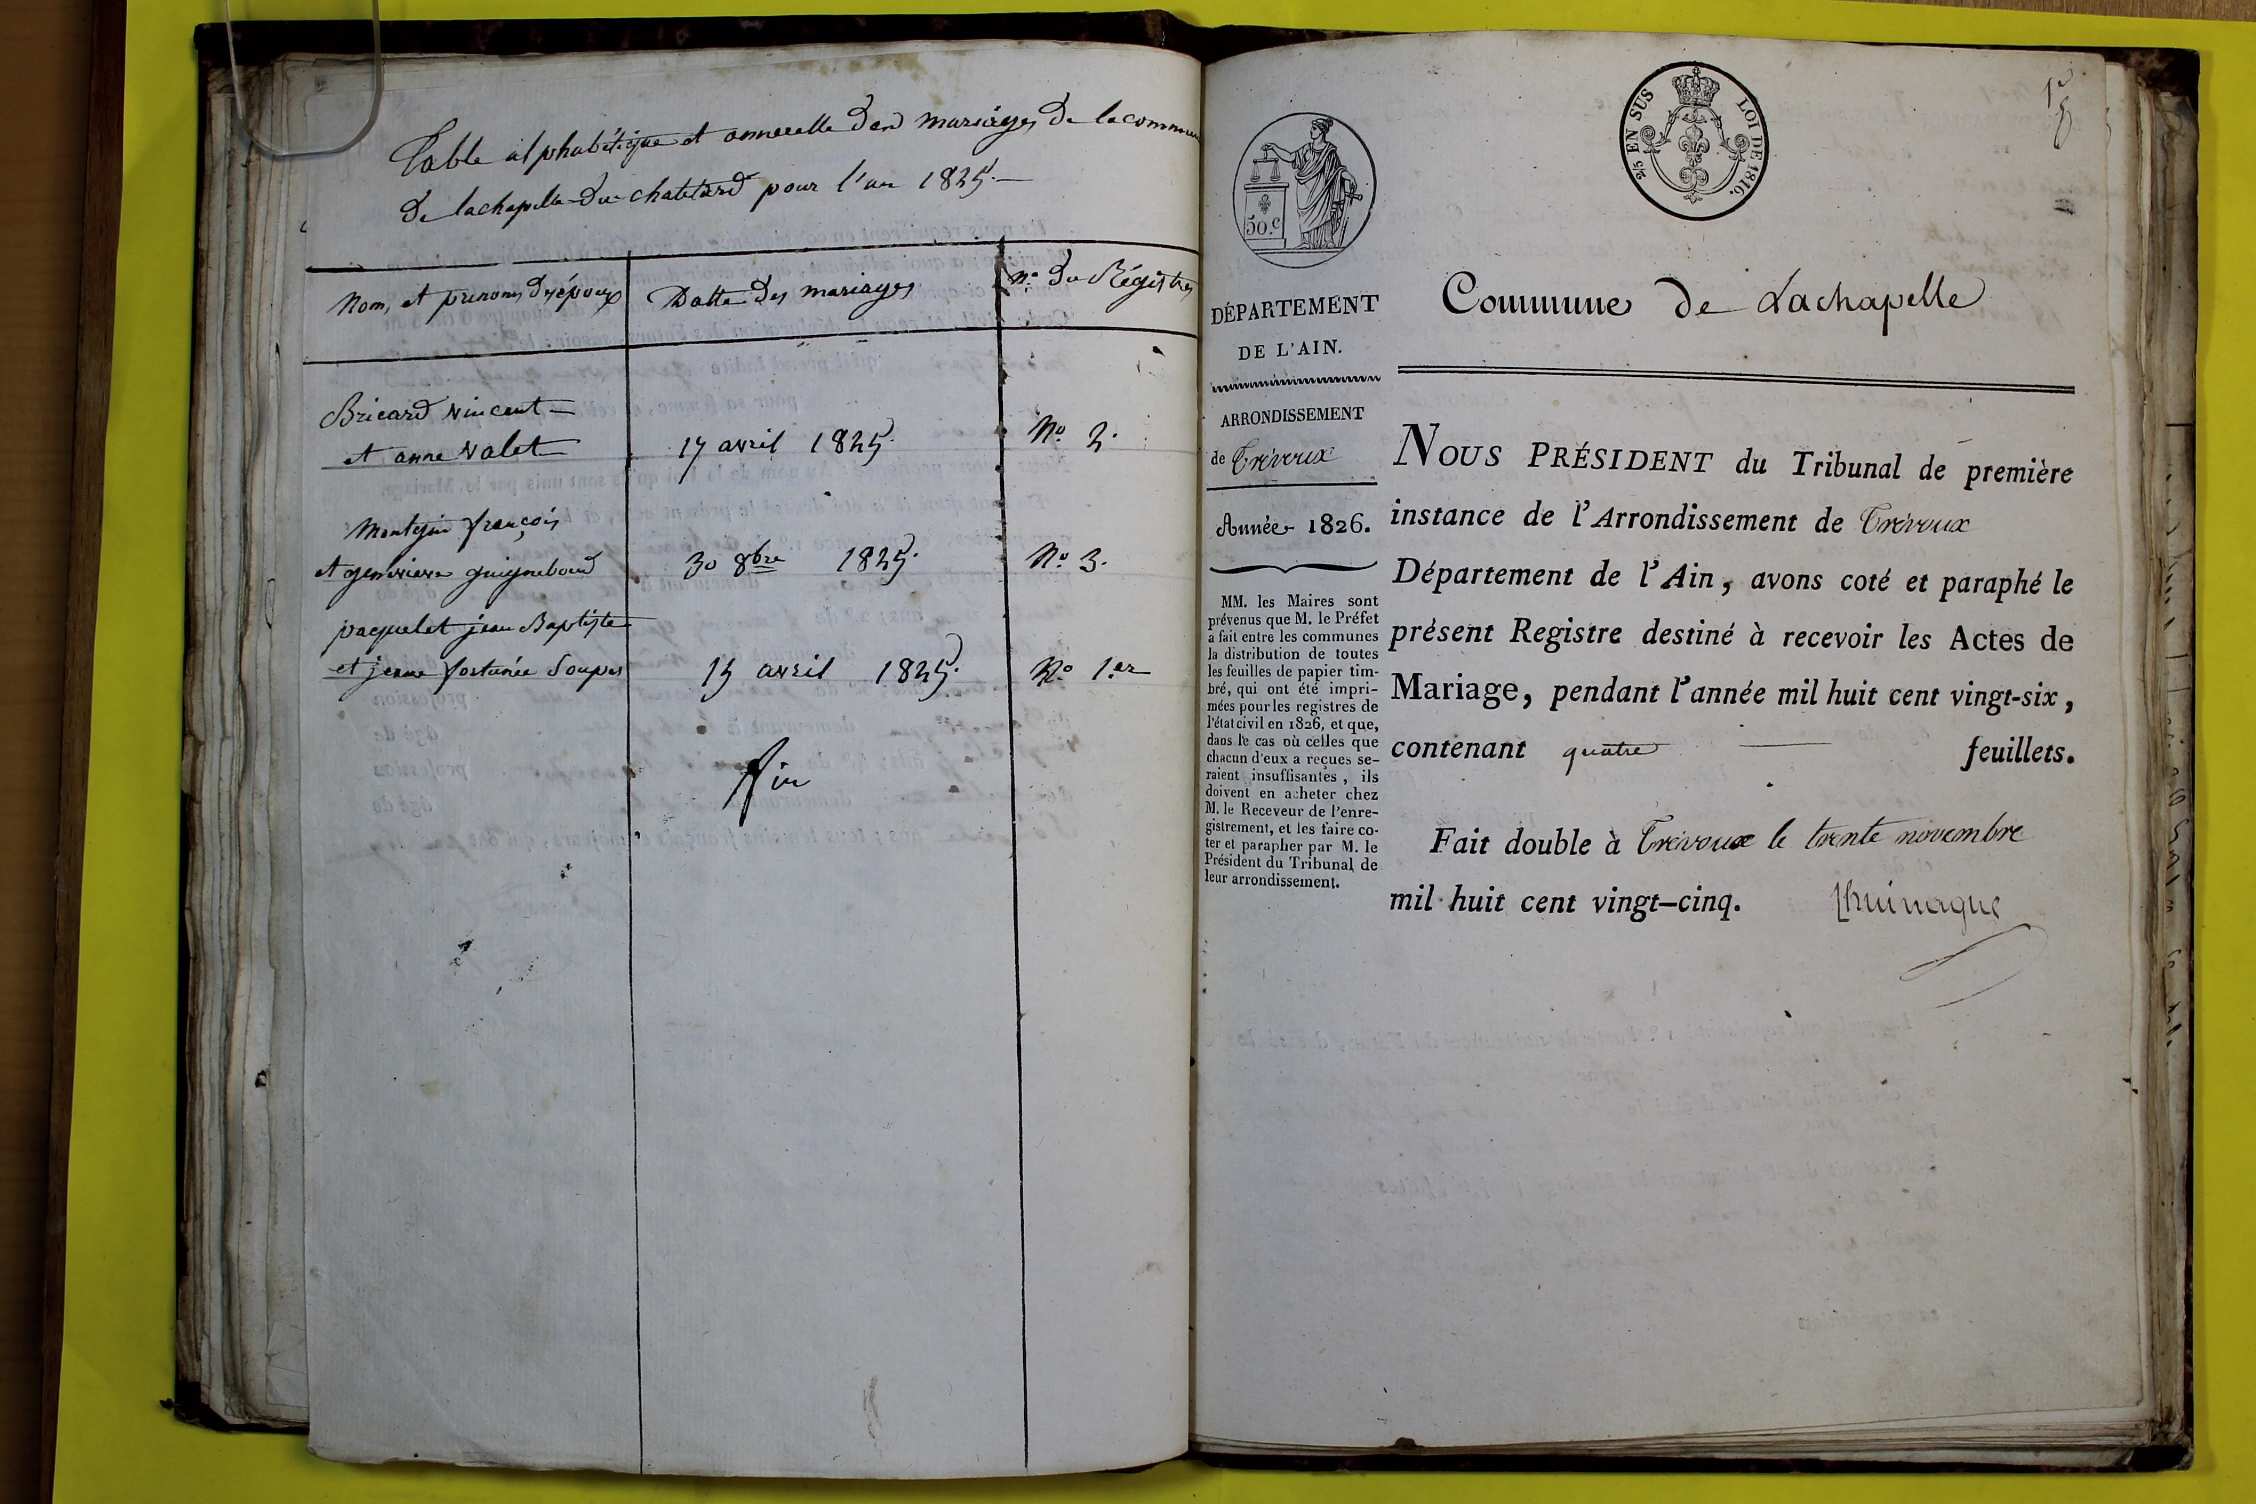 Table alphabétique et annuelle des mariages de la commune
De lachapelle du chatelard pour l'an 1825.
Nom, et prenoms des époux
Datte des mariages
No. du Régistres
Bricard vincent
et anne valet
17 avril 1825.
No. 2.
Montessin françois
et genevieve guignebourd
30 8bre 1825.
No. 3.
paquelet jean Baptiste
et jeanne fortunée Soupes
15 avril 1825.
No. 1.er
fin
1er
50.c
2/5 EN SUS
LOI DE 1816.
DÉPARTEMENT
DE L'AIN.
ARRONDISSEMENT
de Trévoux
Année 1826.
MM. les Maires sont
prévenus que M. le Préfet
a fait entre les communes
la distribution de toutes
les feuilles de papier tim-
bré, qui ont été impri-
mées pour les registres de
l'état civil en 1826, et que,
dans le cas où celles que
chacun d'eux a reçues se-
raient insuffisantes, ils
doivent en acheter chez
M. le Receveur de l'enre-
gistrement, et les faire co-
ter et parapher par M. le
Président du Tribunal de
leur arrondissement.
Commune de Lachapelle
NOUS PRÉSIDENT du Tribunal de première
instance de l'Arrondissement de Trévoux
Département de l'Ain, avons coté et paraphé le
présent Registre destiné à recevoir les Actes de
Mariage, pendant l'année mil huit cent vingt-six,
contenant quatre feuillets.
Fait double à Trévoux le trente novembre
mil huit cent vingt-cinq.